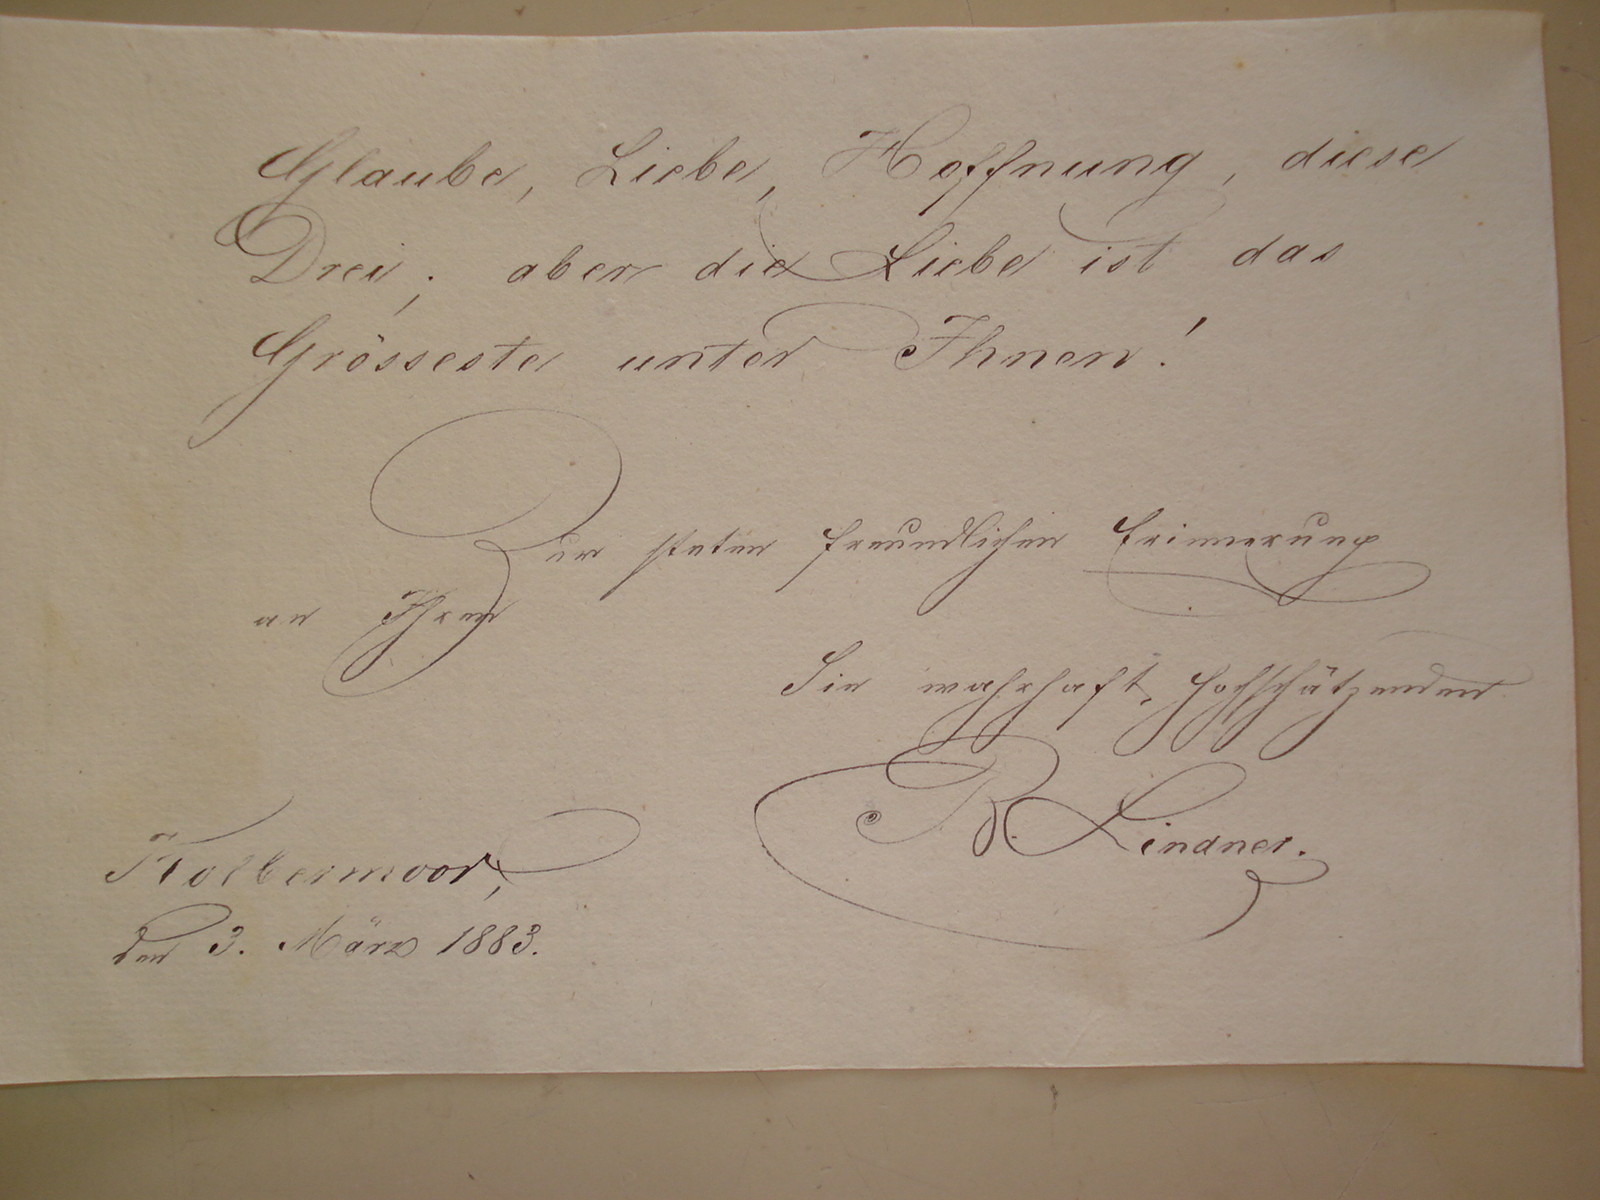 Glaube, Liebe, Hoffnung, diese
Drei; aber die Liebe ist das
Grösseste unter Ihnen!
Zur steten freundlichen Erinnerung
an Ihren
Sie wahrhaft hochschätzenden
R. Lindner.
Kolbermoor,
den 3. März 1883.